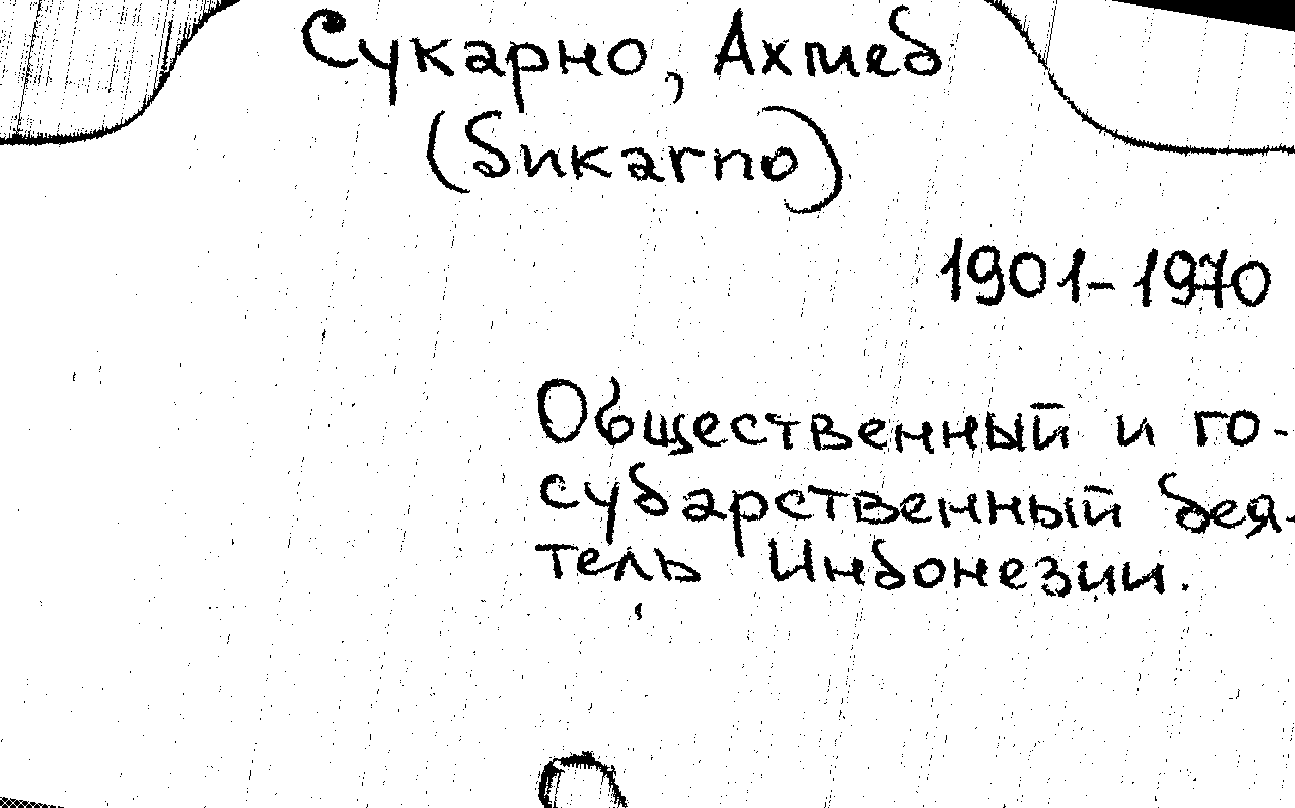 Сукарно, Ахмед
(Sukarno)
1901-1970
Общественный и го-
сударственный дея-
тель Индонезии.